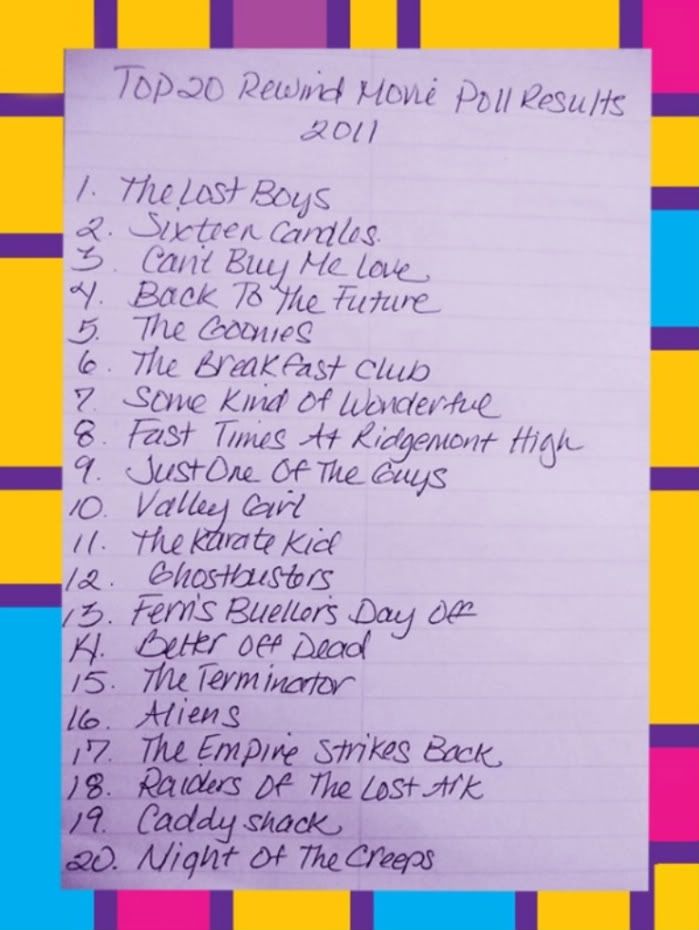 Top 20 Rewind Movie Poll Results
2011
1. The Lost Boys
2. Sixteen Candles.
3. Can't Buy Me Love
4. Back To The Future
5. The Goonies
6. The Breakfast Club
7. Some Kind Of Wonderful
8. Fast Times At Ridgemont High
9. Just One Of The Guys
10. Valley Girl
11. The Karate Kid
12. Ghostbusters
13. Ferris Bueller's Day Off
14. Better Off Dead
15. The Terminator
16. Aliens
17. The Empire Strikes Back
18. Raiders Of The Lost Ark
19. Caddyshack
20. Night Of The Creeps